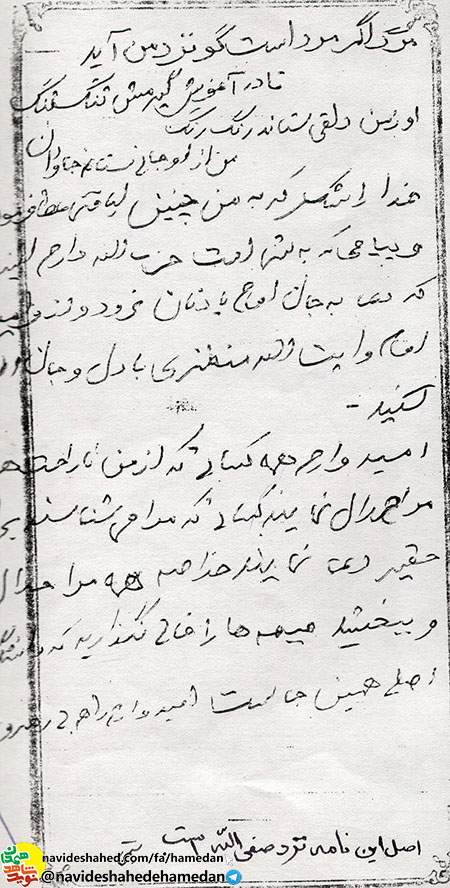 مرگ اگر مرد است گو نزد من آید
تا در آغوشش گیرمش تنگ تنگ
او زمن دلقی ستاند رنگ رنگ
من از او جانی ستانم جاودان
خدا را شکر که به من چنین لیاقتی عطا فرمود
و پیامی که به شما امت حزب الله دارم اینست
که دعا به جان امام یادتان نرود و از
امام و ایت الله منتظری با دل و جان
کنید -
امیدوارم همه کسانی که از من ناراحت
مرا حلال نمایند کسانی که مرا می شناسند
حقیر دعا نمایند خداهمه مرا حلال
و ببخشید جبهه ها را خالی نگذارید که
اصلی همین جاست امیدوارم راهم را
اصل این نامه نزد صفی الله است
navideshahed.com/fa/hamedan
@navideshahedehamedan
نوید شاهد